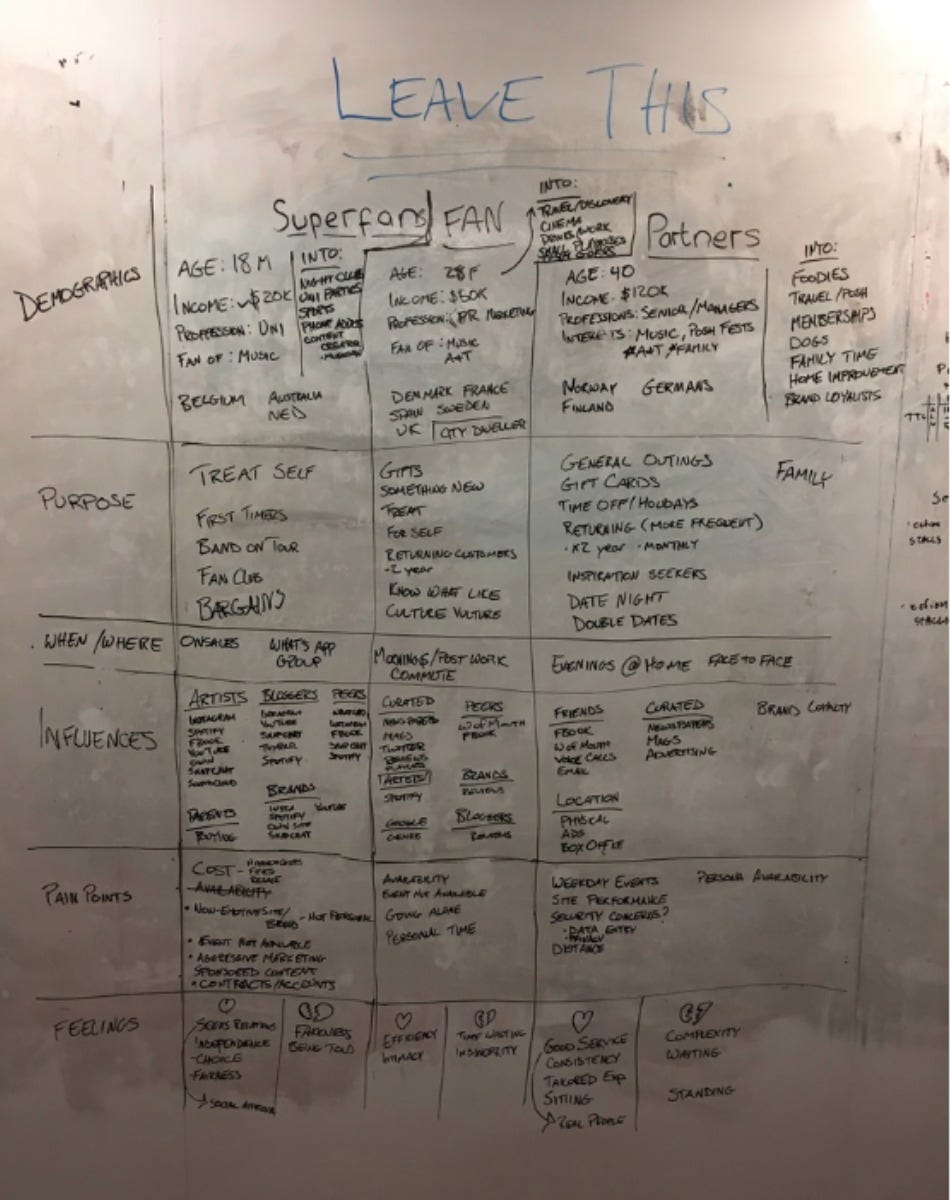 LEAVE THIS
Superfans
FAN
INTO:
TRAVEL/DISCOVERY
CINEMA
DRINKS/WORK
Partners
DEMOGRAPHICS
AGE: 18 M
INCOME: ~$20K
PROFFESSION: UNI
FAN OF: MUSIC
BELGIUM AUSTRALIA
NED
INTO:
NIGHT CLUB
UNI PARTIES
SPORTS
PHONE ADDICT
CONTENT
CREATOR
AGE: 28 F
INCOME: $50K
PROFESSION: PR MARKETING
FAN OF: MUSIC
A+T
DENMARK FRANCE
SPAIN SWEDEN
UK CITY DWELLER
AGE: 40
INCOME: $120K
PROFESSIONS: SENIOR/MANAGERS
INTERESTS: MUSIC, POSH FESTS
A+T, FAMILY
NORWAY GERMANS
FINLAND
INTO:
FOODIES
TRAVEL/POSH
MEMBERSHIPS
DOGS
FAMILY TIME
HOME IMPROVEMENT
BRAND LOYALISTS
PURPOSE
TREAT SELF
FIRST TIMERS
BAND ON TOUR
FAN CLUB
BARGAINS
GIFTS
SOMETHING NEW
TREAT
FOR SELF
RETURNING CUSTOMERS
-2 year
KNOW WHAT LIKE
CULTURE VULTURE
GENERAL OUTINGS
GIFT CARDS
TIME OFF/HOLIDAYS
RETURNING (MORE FREQUENT)
·x2 year ·MONTHLY
INSPIRATION SEEKERS
DATE NIGHT
DOUBLE DATES
FAMILY
WHEN/WHERE
ONSALES WHAT'S APP
GROUP
MORNINGS/POST WORK
COMMUTE
EVENINGS @ HOME FACE TO FACE
INFLUENCES
ARTISTS
INSTAGRAM
SPOTIFY
FBOOK
YOUTUBE
OWN
SNAPCHAT
SOUNDCLOUD
BLOGGERS
INSTAGRAM
YOUTUBE
SNAPCHAT
TUMBLR
SPOTIFY
PEERS
FBOOK
SNAPCHAT
SPOTIFY
PARENTS
BUYING
BRANDS
INSTA YOUTUBE
SPOTIFY
OWN SITE
SNAPCHAT
CURATED
NEWSPAPERS
MAGS
TWITTER
REVIEWS
PLAYLISTS
ARTISTS
SPOTIFY
GOOGLE
GENRE
PEERS
W of MOUTH
FBOOK
BRANDS
REVIEWS
BLOGGERS
REVIEWS
FRIENDS
FBOOK
W of MOUTH
VOICE CALLS
EMAIL
LOCATION
PHYSICAL
ADS
BOX OFFICE
CURATED
NEWSPAPERS
MAGS
ADVERTISING
BRAND LOYALTY
PAIN POINTS
COST -
FEES
RESALE
AVAILABILITY
• NON-EMOTIVE SITE/
BRAND - NOT PERSONAL
• EVENT NOT AVAILABLE
• AGGRESSIVE MARKETING
SPONSORED CONTENT
• CONTRACTS/ACCOUNTS
AVAILABILITY
EVENT NOT AVAILABLE
GOING ALONE
PERSONAL TIME
WEEKDAY EVENTS
SITE PERFORMANCE
SECURITY CONCERNS?
·DATA ENTRY
·PRIVACY
DISTANCE
PERSONAL AVAILABILITY
FEELINGS
INDEPENDENCE
-CHOICE
-FAIRNESS
SOCIAL APPROVAL
FAKENESS
BEING TOLD
EFFICIENCY
INTIMACY
TIME WASTING
INSINCERITY
GOOD SERVICE
CONSISTENCY
TAILORED EXP
SITTING
REAL PEOPLE
COMPLEXITY
WAITING
STANDING